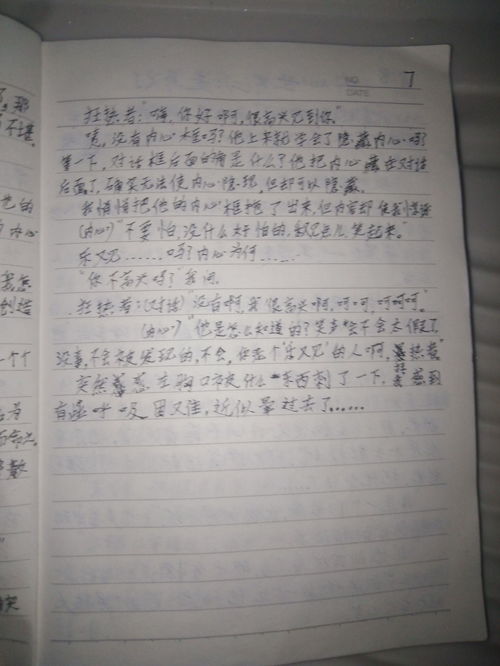 了，那
不堪
NO.
7
DATE
狂热者：“嗨，你好啊，很高兴见到你”
咦，没有内心框吗？他上来就学会了隐藏内心吗？
等一下，对话框后面的那是什么？他把内心藏在对话
后面了，确实无法使内心隐现，但却可以隐藏。
我悄悄把他的内心框拖了出来，但内容却使我惊讶
（内心）“不要怕，没什么好怕的，
笑起来。”
乐又见……吗？内心为何……
“你不高兴吗？”我问。
狂热者：（对话）“没有啊，我很高兴啊，呵呵，呵呵呵”
（内心）“他是怎么知道的？笑声会不会太假了，
没事，不会被发现的，不会，
个‘乐又见’的人啊，
突然
，左胸口被什么东西刺了一下，
感到
有
呼吸困又难，近似晕过去了……
色的
内心
我怎
创造
一个个
后为
整
笑